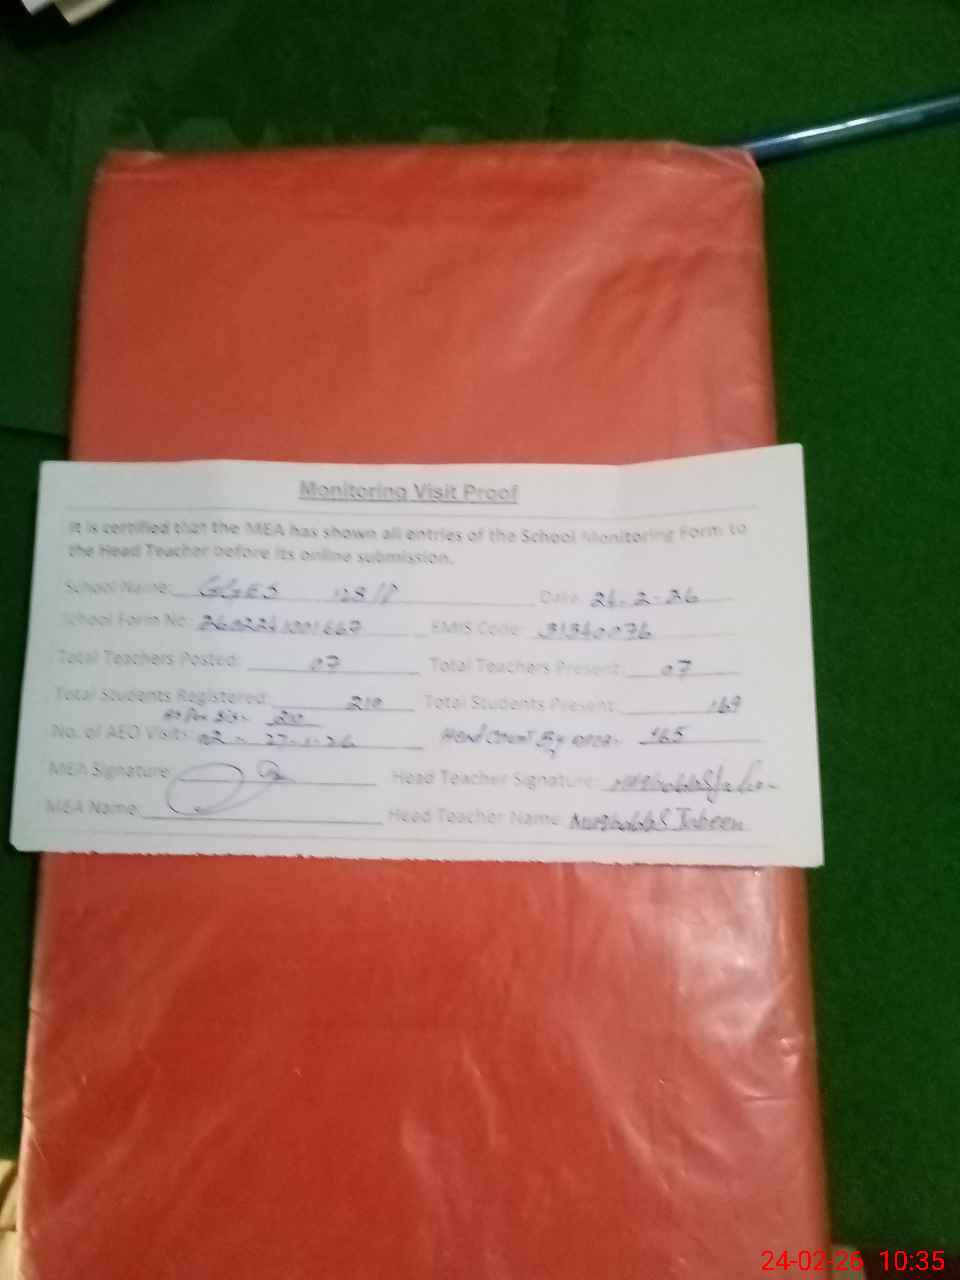 Monitoring Visit Proof
It is certified that the MEA has shown all entries of the School Monitoring Form to
the Head Teacher before its online submission.
School Name: GGES 128/P Date: 24-2-26
School Form No: EMIS Code: 31340076
Total Teachers Posted: 07 Total Teachers Present: 07
Total Students Registered: 210 Total Students Present: 169
As Per SIS- 210
No. of AEO Visits: 02 - 27-1-26 Head Count By 165
MEA Signature: Head Teacher Signature:
MEA Name: Head Teacher Name: Jabeen
24-02-26 10:35